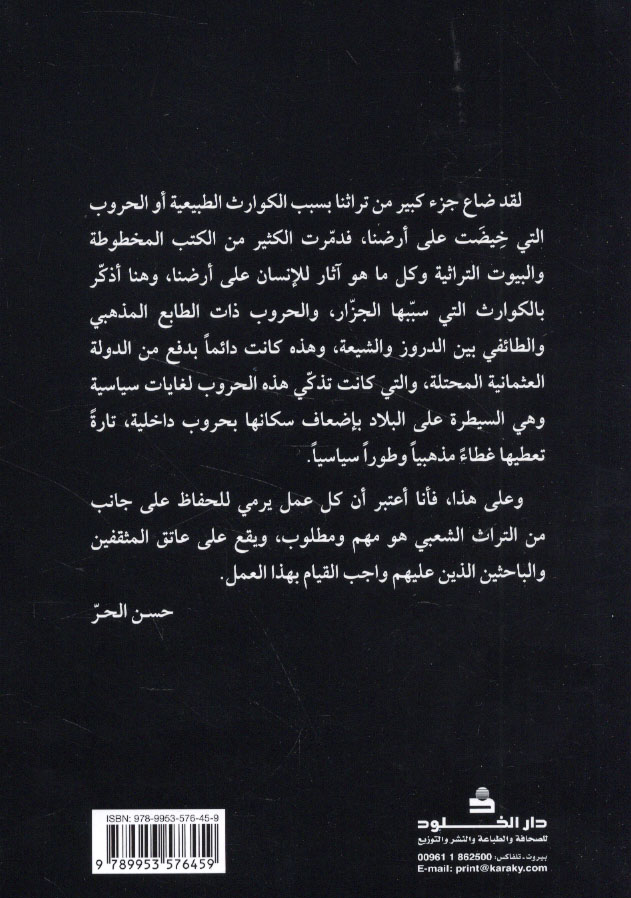 لقد ضاع جزء كبير من تراثنا بسبب الكوارث الطبيعية أو الحروب
التي خِيضَت على أرضنا، فدمّرت الكثير من الكتب المخطوطة
والبيوت التراثية وكل ما هو آثار للإنسان على أرضنا، وهنا أذكّر
بالكوارث التي سبّبها الجزّار، والحروب ذات الطابع المذهبي
والطائفي بين الدروز والشيعة، وهذه كانت دائماً بدفع من الدولة
العثمانية المحتلة، والتي كانت تذكّي هذه الحروب لغايات سياسية
وهي السيطرة على البلاد بإضعاف سكانها بحروب داخلية، تارةً
تعطيها غطاءً مذهبياً وطوراً سياسياً.
وعلى هذا، فأنا أعتبر أن كل عمل يرمي للحفاظ على جانب
من التراث الشعبي هو مهم ومطلوب، ويقع على عاتق المثقفين
والباحثين الذين عليهم واجب القيام بهذا العمل.
حسن الحرّ
ISBN: 978-9953-576-45-9
9 789953 576459
دار الخلود
للصحافة والطباعة والنشر والتوزيع
بيروت - تلفاكس: 862500 1 00961
E-mail: print@karaky.com